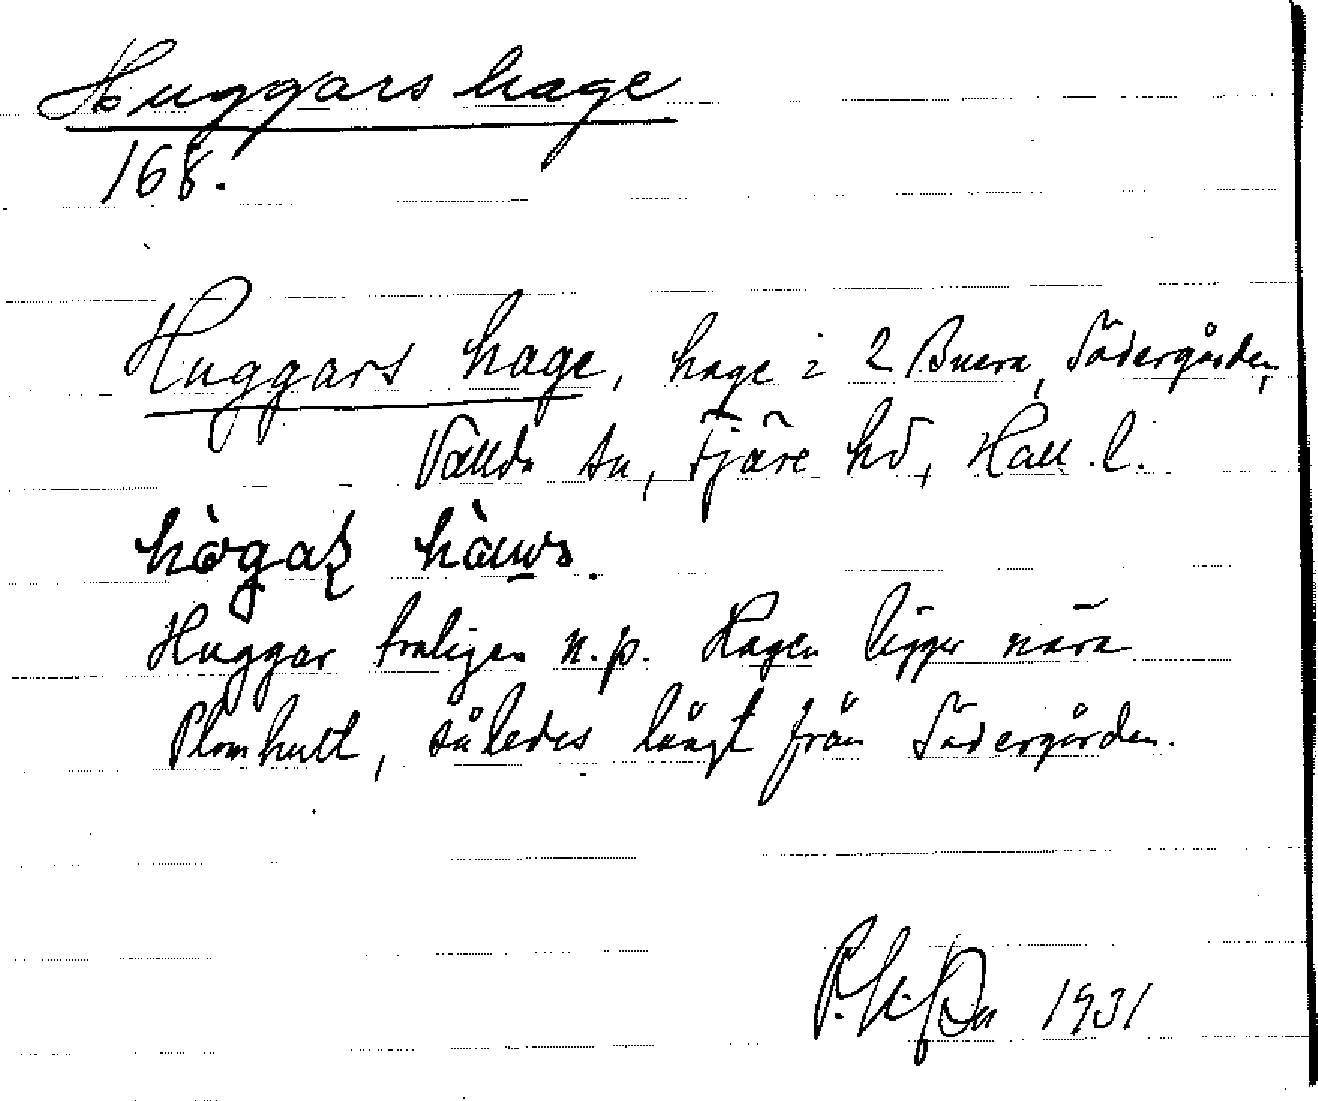 Huggars hage
168.
Huggars hage, hage i 2 Buera, Södergården,
Vallda sn, Fjäre hd, Hall. l.
Huggar troligen n.p. Hagen ligger nära
Plomhult, således långt från Södergården.
1931